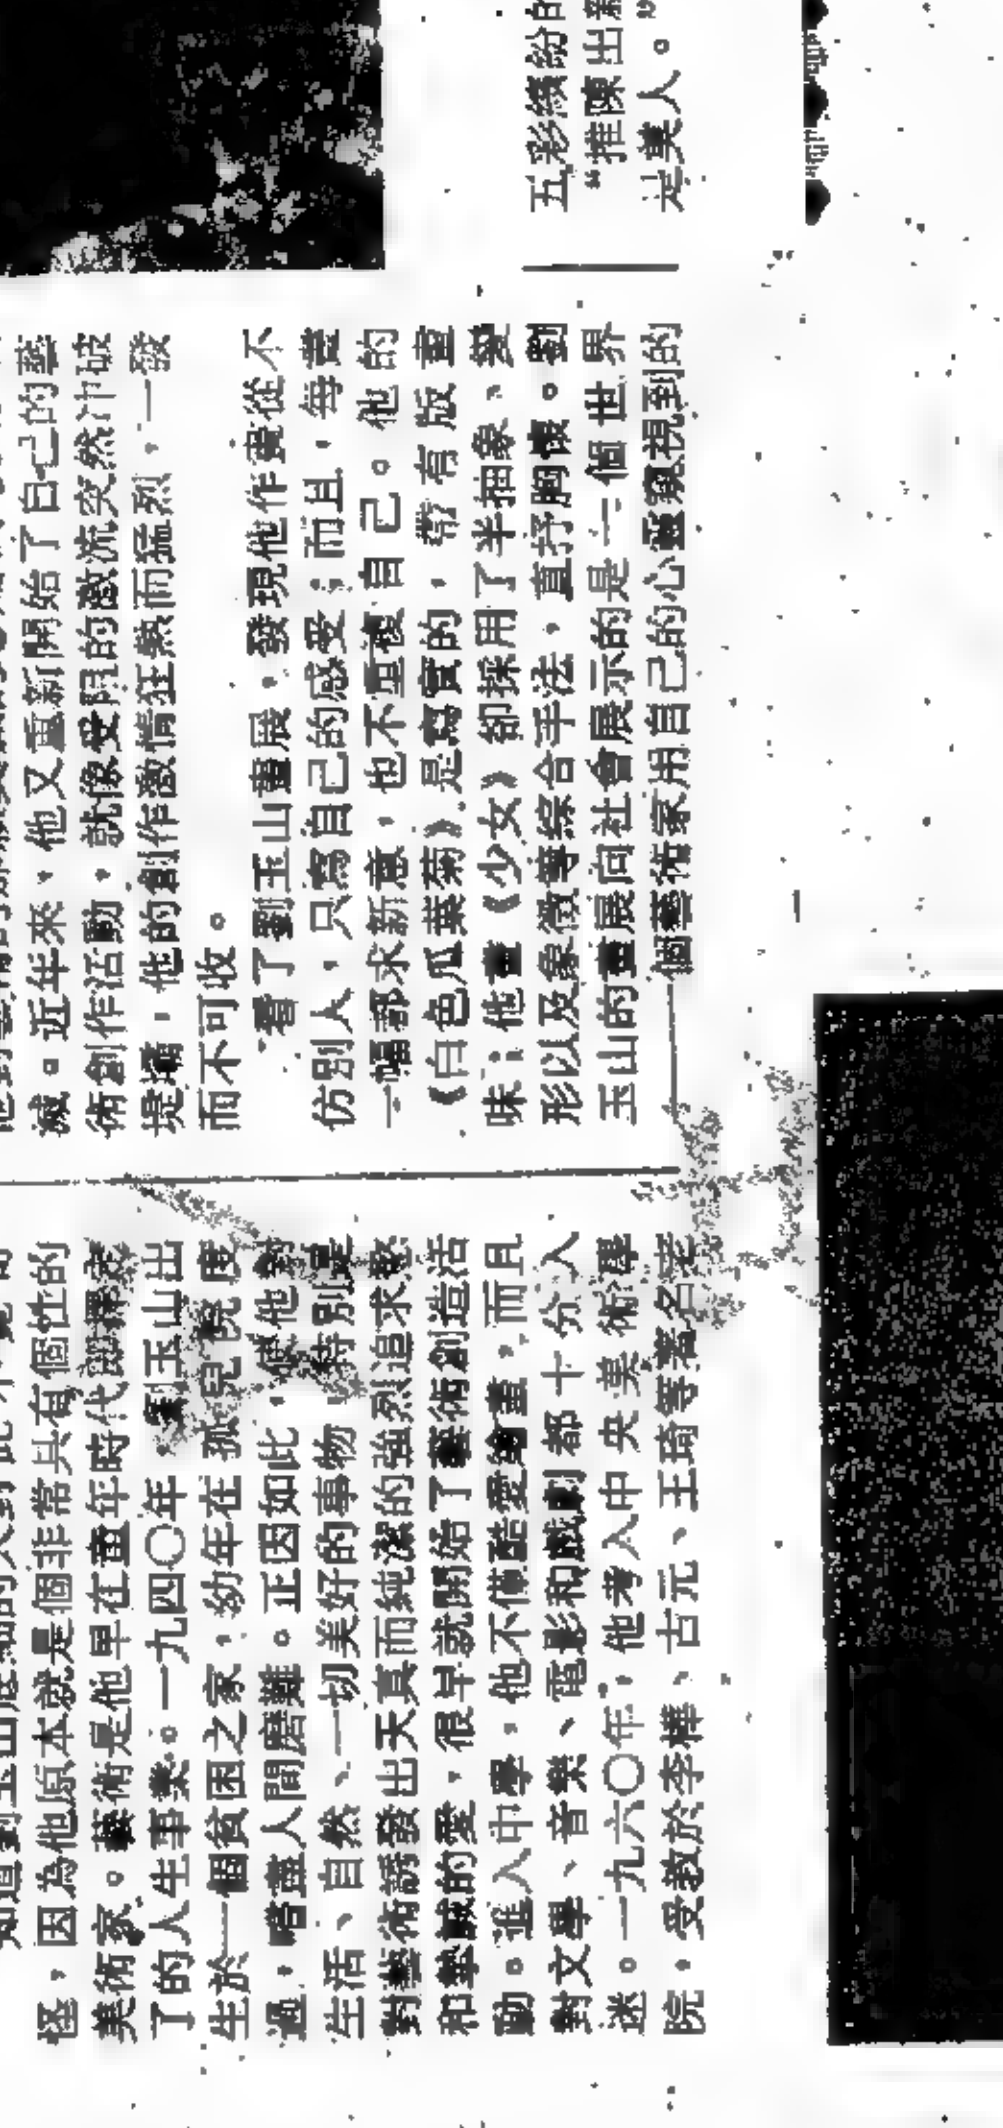 怪，因為他原本就是個非常具有個性的
美術家。藝術是他早在童年時代
了的人生事業。一九四〇年，劉玉山出
生於一個貧困之家，幼年在孤兒院度
過，嚐盡人間磨難。正因如此，使他對
生活、自然、一切美好的事物，特別是
對藝術誘發出天真而純潔的強烈追求慾
和摯誠的愛，很早就開始了藝術創造活
動。進入中學，他不僅酷愛繪畫，而且
對文學、音樂、電影和戲劇都十分入
迷。一九六〇年，他考入中央美術學
院，受教於李樺、古元、王琦等著名老
滅。近年來，他又重新開始了自己的藝
術創作活動，就像受阻的激流突然冲破
堤壩，他的創作激情狂熱而猛烈，一發
而不可收。
看了劉玉山畫展，發現他作畫從不
仿別人，只寫自己的感受；而且，每畫
一幅都求新意，也不重複自己。他的
《白色瓜葉菊》是寫實的，帶有版畫
味；他畫《少女》卻採用了半抽象、變
形以及象徵等綜合手法，直抒胸懷。劉
玉山的畫展向社會展示的是一個世界
——一個藝術家用自己的心靈窺視到的
五彩繽紛的
“推陳出新”
是美人。